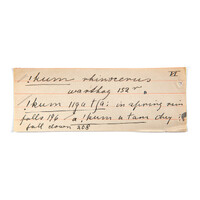 !kum rhinoceros VI
warthog 152 r.
!kum !!gatfa: in spring rain
falls 196 a !kum a tan they
fall down 208